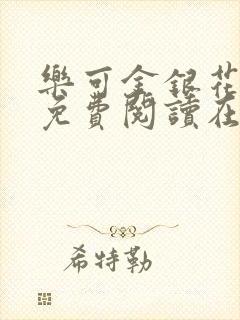 樂可金銀花
免費閱讀在
希特勒